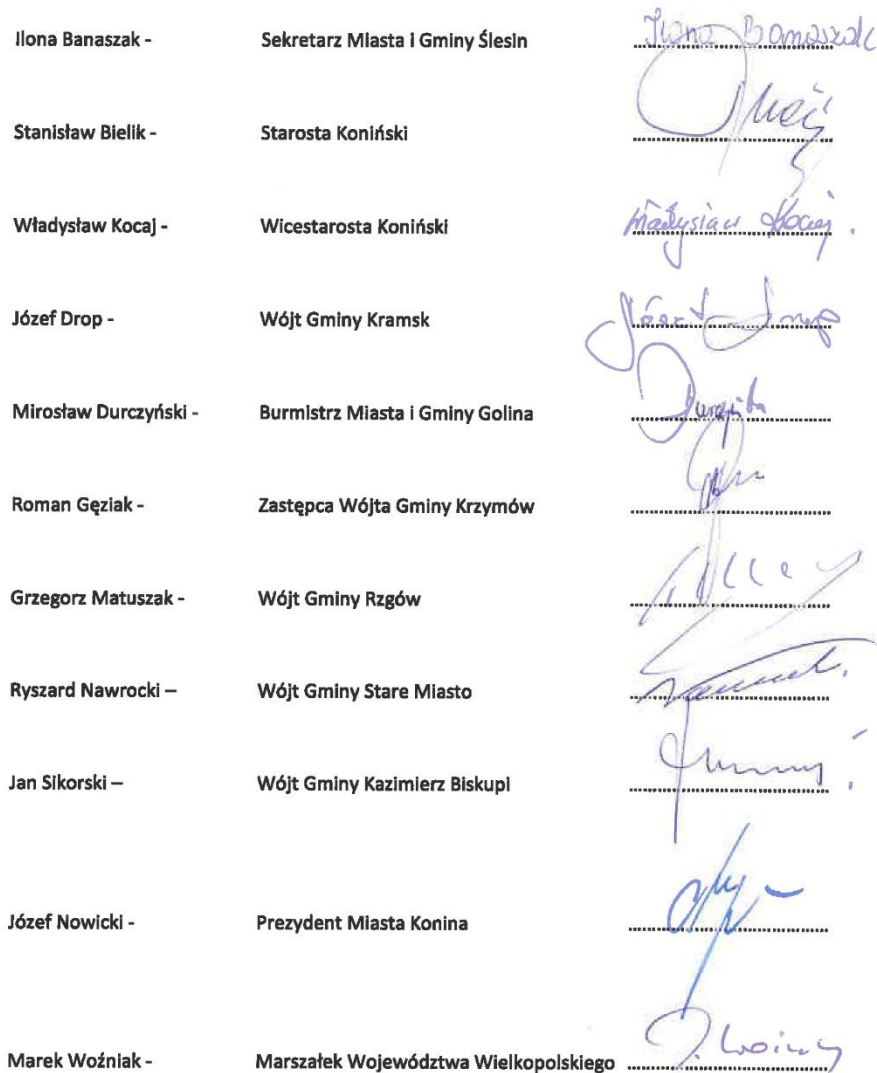 Ilona Banaszak - Sekretarz Miasta i Gminy Ślesin Ilona Banaszak
Stanisław Bielik - Starosta Koniński
Władysław Kocaj - Wicestarosta Koniński Władysław Kocaj.
Józef Drop - Wójt Gminy Kramsk Józef Drop
Mirosław Durczyński - Burmistrz Miasta i Gminy Golina
Roman Gęziak - Zastępca Wójta Gminy Krzymów
Grzegorz Matuszak - Wójt Gminy Rzgów
Ryszard Nawrocki – Wójt Gminy Stare Miasto
Jan Sikorski – Wójt Gminy Kazimierz Biskupi
Józef Nowicki - Prezydent Miasta Konina
Marek Woźniak - Marszałek Województwa Wielkopolskiego